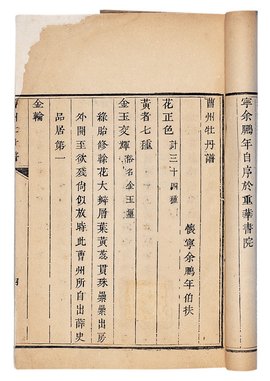 寧余鵬年自序於重華書院
曹州牡丹譜
懷寧余鵬年伯扶
花正色 計三十四種
黃者七種
金玉交輝 俗名金玉璽
綠胎修榦花大瓣層葉黃蕊貫珠纍纍出房
外開至欲殘尚似放時此曹州所自出薛史
品居第一
金輪
四